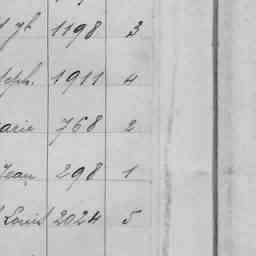 1198 3
1911 4
768 2
Jean 298 1
Louis 2024 5